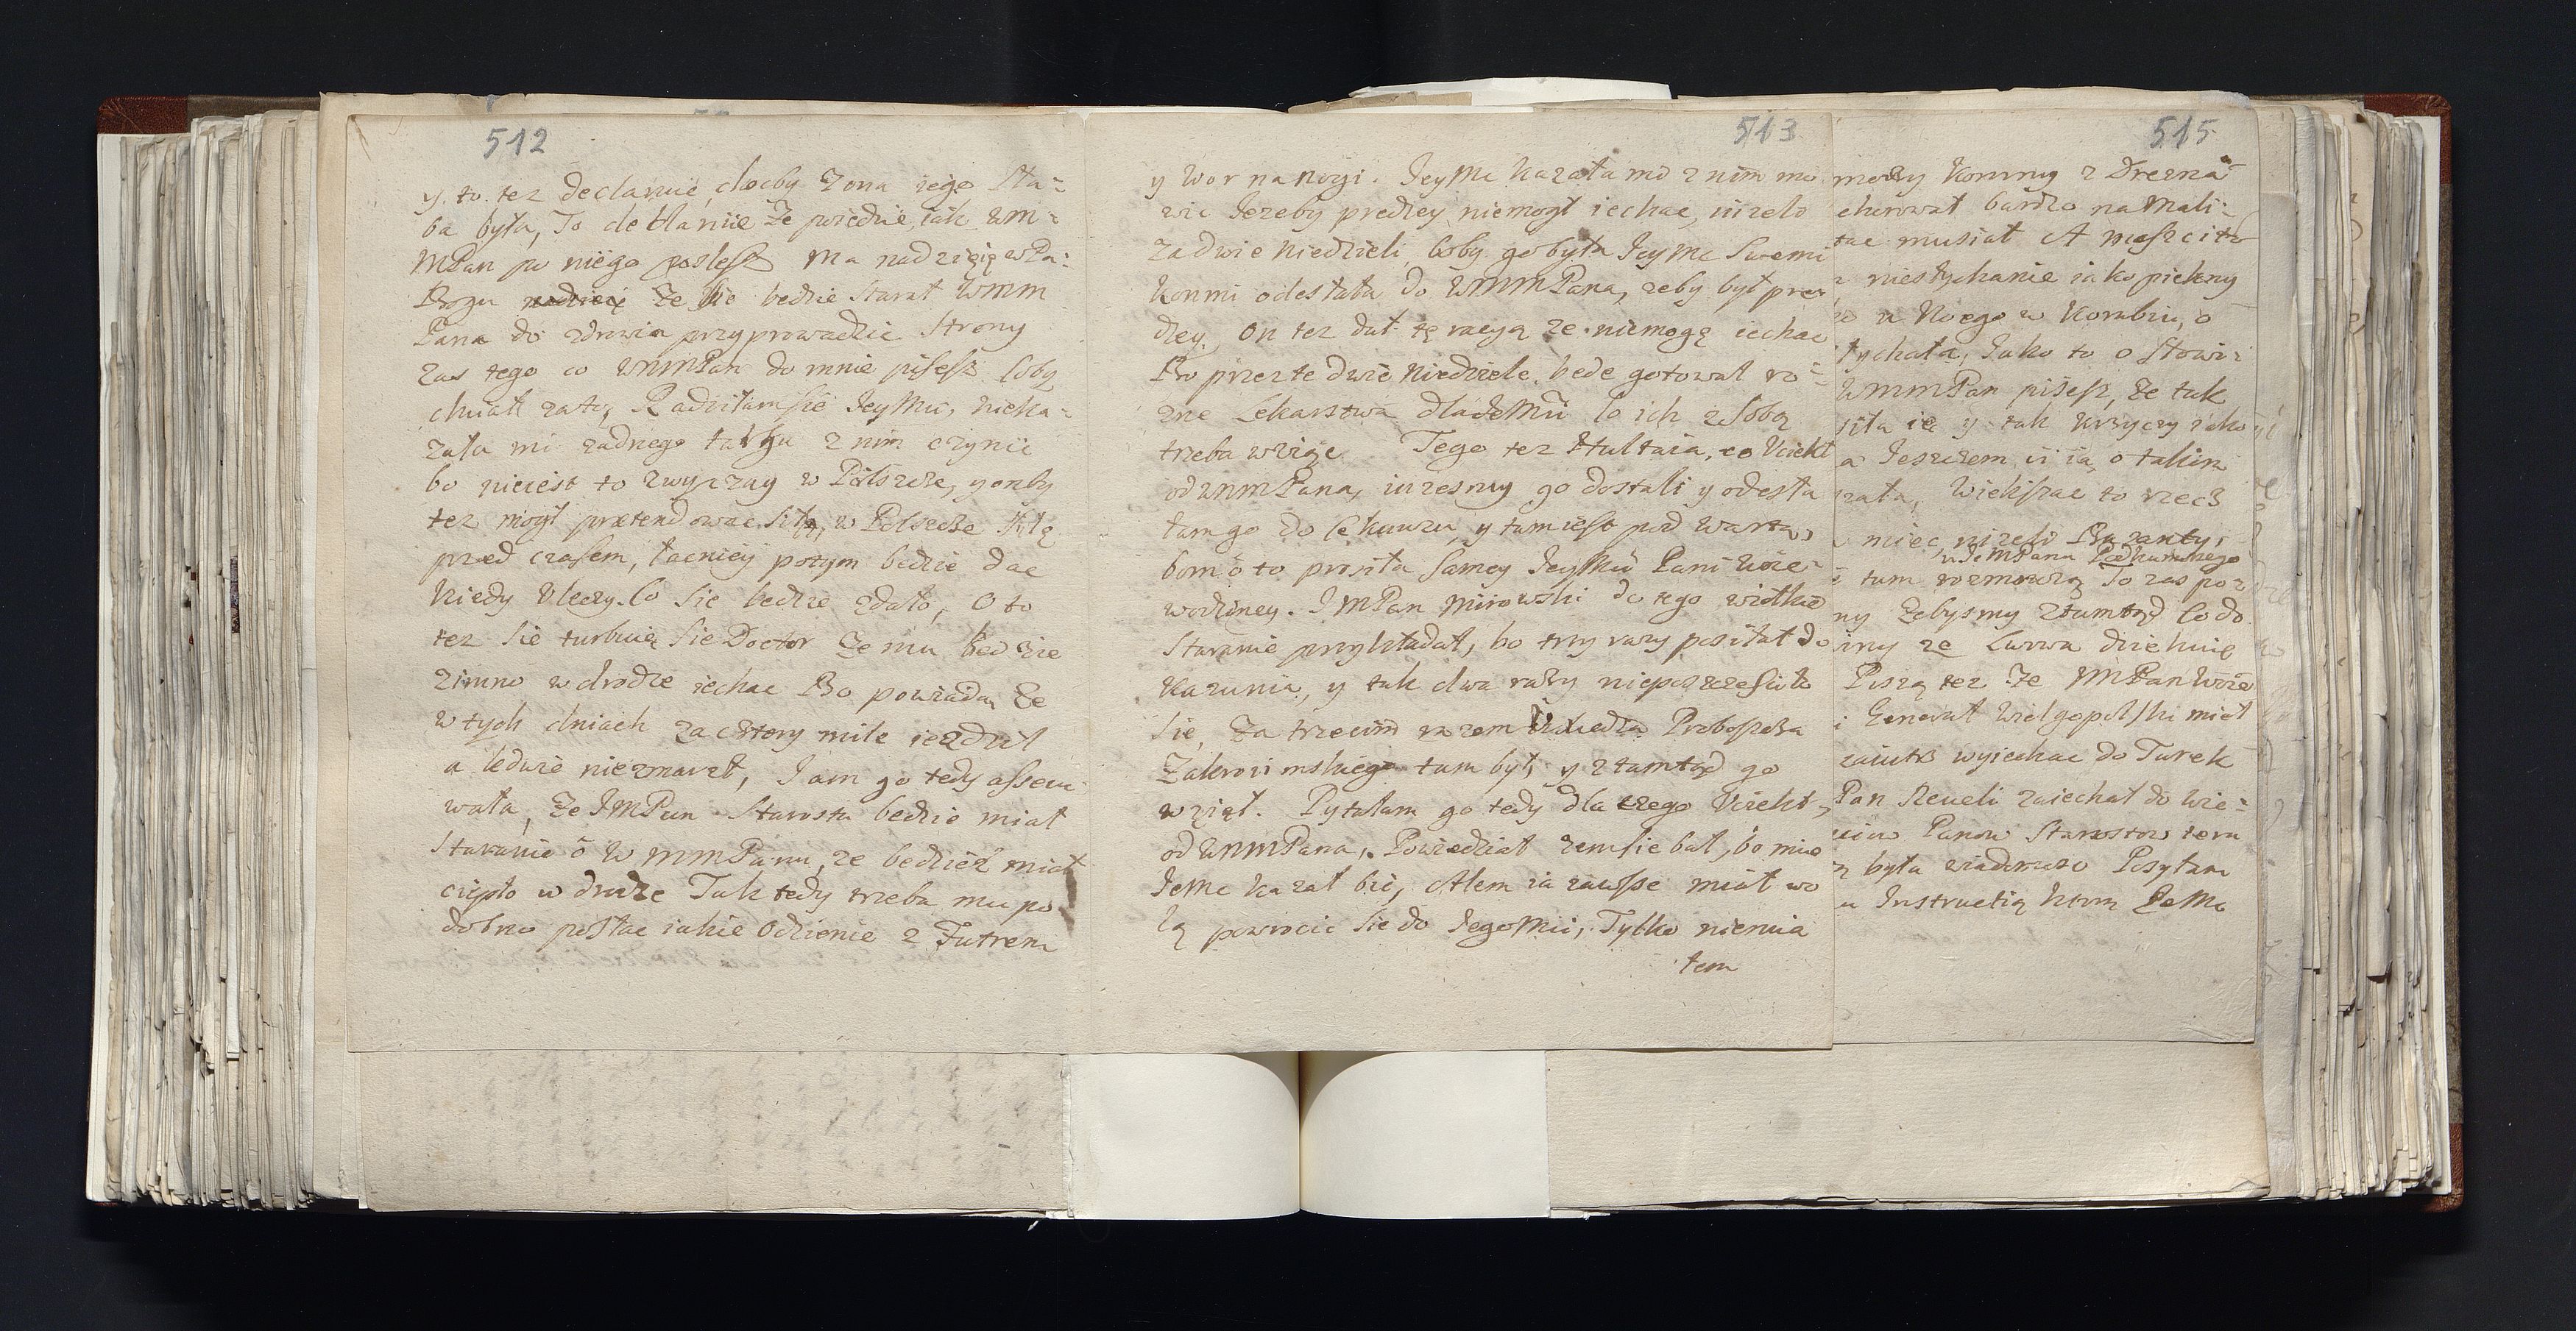 512
y to tez declaruie, choćby Zona iego sła-
ba była, To deklaruie Ze poiedzie, iak WM-
MPan po niego poslesz Ma nadzięię w Pa:
Bogu Ze sie bedzie starał WMM
Pana do zdrowia przyprowadzic Strony
zas tego co WMMPan do mnie pisesz coby
chciał zato, Radziłam sie JeyMci, nieka-
zała mi zadnego targu z nim czynic
bo nieiest to zwyczay w Polszcze, y onby
tez mogł prætendowac siłą, w Polszcze siłą
przed czasem, łacniey potym bedzie dac
kiedy Vleczy. co sie bedzie zdało, O to
tez sie turbuię sie Doctor Ze mu bedzie
zimno w drodze iechac Bo powiada, Ze
w tych dniach za cztery mile iezdził
a ledwie niezmarzł, Jam go tedy assecu
wała, Ze JMPan Starosta bedzie miał
staranie o WMMPanu, ze bedzieź miał
ciepło w drodze Tak tedy trzeba mu po
dobno posłac iakie Odzienie z Futrem
513
y Wor na Nogi. JeyMc kazała mo z nim mo
wic Jezeby predzey niemogł iechac, nizeli
za dwie Niedzieli, boby go była JeyMc swemi
konmi odesłała do WMMPana, zeby był pre
dzey. On tez dał tę racyą ze niemogę iechac
Bo przez te dwie Niedziele bede gotował ro-
zne Lekarstwa dla JeMci co ich z sobą
trzeba wziąc Tego tez Hultaia, co Vciekł
od WMMPana, iuzesmy go dostali y odesła
łam go do Lekauzu, y tam iest pod wartą,
bom o to prosiła samey JeyMci Pani Woie-
wodziney. JMPan Mirowski do tego wielkie
staranie przykładał, bo trzy razy posiłał do
Kazunia, y tak dwa razy nieposzczesciło
sie, Za trzecim razem Proboszcza
Zakroczimskiego tam był, y ztamtąd go
wziął. Pytałam go tedy dla czego Vciekł,
od WMMPana, Powiedział zemsie bał, bo mie
JeMc kazał bic, Alem ia zawsse miał wo
lą powrocic sie do JegoMci, Tylko niemia
łem
515
Konny z Drezna
chorował bardzo na Mali-
tac musiał A
niesłychanie iako piekny
u Koego w Korabiu, o
łychała, Jako to o słowi-
WMMPan pisesz, Ze tak
siła ie y tak krzyczy iako
a Jeszczem ii ia o takim
zała, Wieksza to rzecz
miec, nizeli Bazanty,
u JeMPana Podkomorzego
tam rozmowką To zas poz
ny Zebysmy ztamtąd co do
iny ze Lwowa dziekuię
Piszą tez Ze JMPan Woie
i Generał Wielgopolski miał
wyiechac do Turek
Pan Reuelii zaiechał do Wie-
Panow Starostow tera
była wiadomoso Posyłam
Instructią ktora JeMc